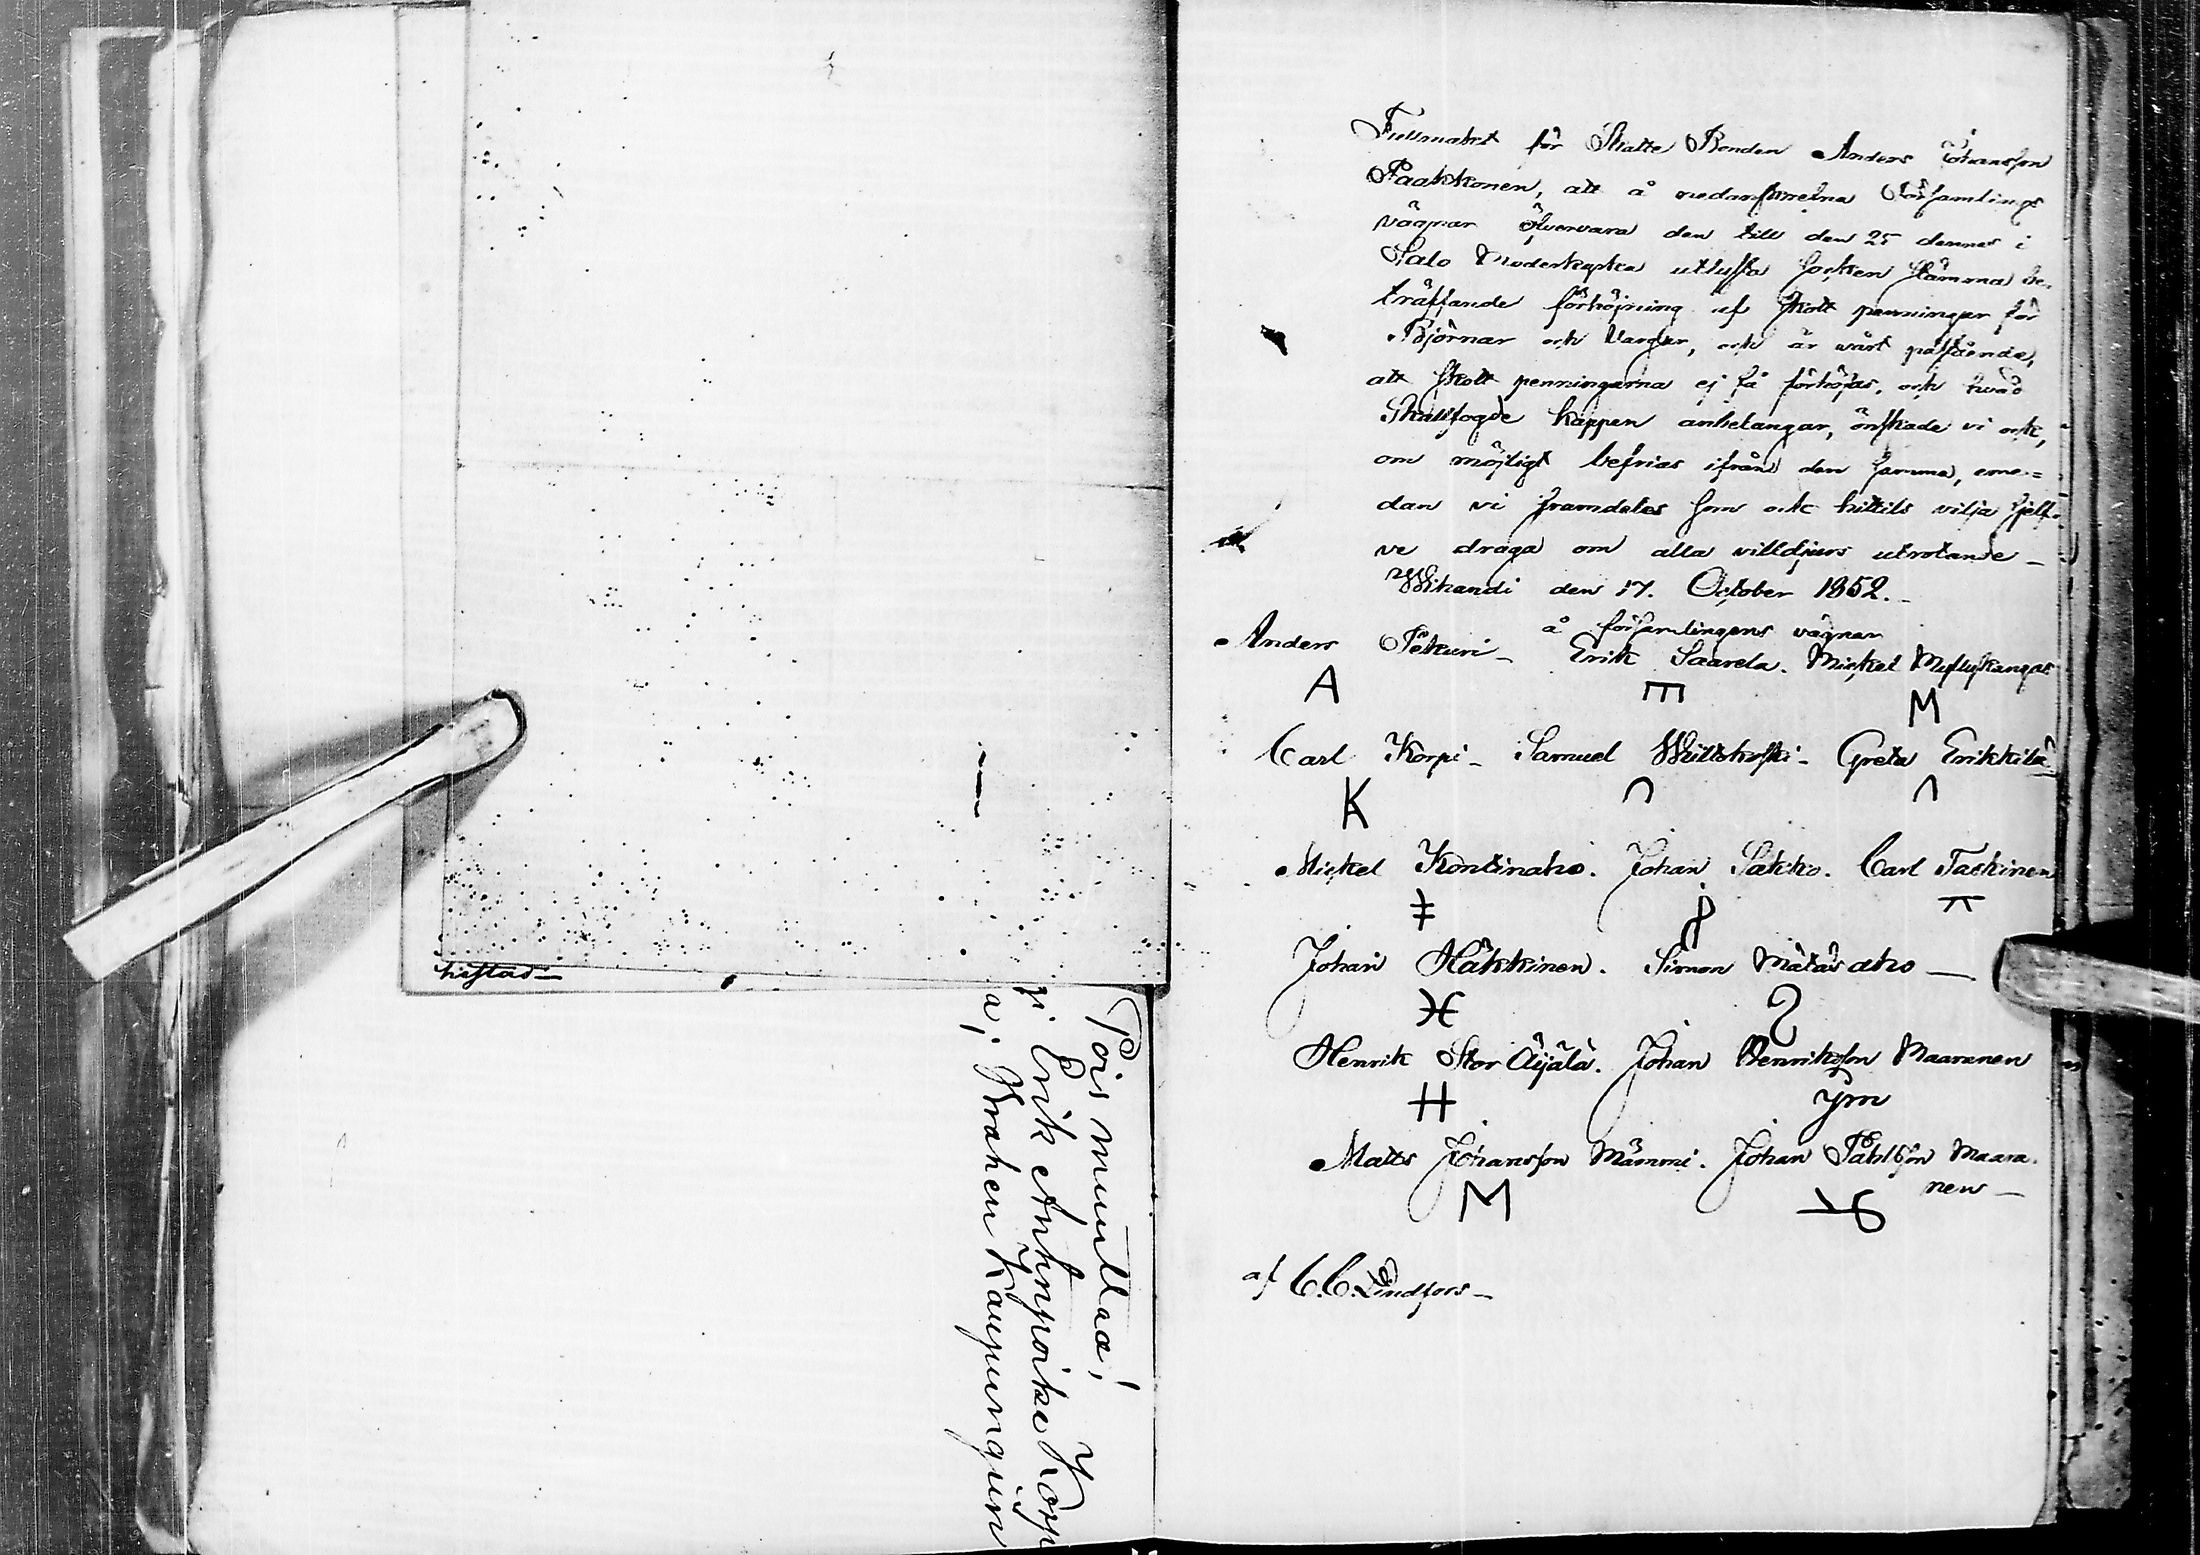 Fullmakt för Skatte Bonden Anders Johansson
Paakkonen, att å nedanskrefna Församlings
vägnar öfvervara den till den 25 dennes i
Salo Moderkyrka utlysta Socken stämma be-
träffande förhöjning af skott penningar för
Björnar och Vargar, och är vårt påstående,
att skott penningarna ej få förhöjas, och hvad
Skallfogde kappen anbelangar, önskade vi ock,
om möjligt befrias ifrån den samma, eme=
dan vi framdeles som ock hittils vilja sjelf-
ve draga om alla villdjurs utrotande –
Wihandi den 17. October 1852. –
å församlingens vägnar
Anders Pekuri – Erik Saarela. Mickel Myllykangas
A E M
Carl Korpi – Samuel Wiitskoski – Greta Erikkilä
K
Mickel Kontinaho. Johan Sakko. Carl Taskinen
Johan Häkkinen. Simon Mätäsaho –
Henrik Stor Äijälä. Johan Henriksson Maaranen
H ym
Matts Johansson Mämmi. Johan Påhlsson Maara-
nen –
M
af C. C. Lindfors –
häftad –
Pois muuttaa;
Erik Anhmpoika Korp
a; Brahen Kaupungiin